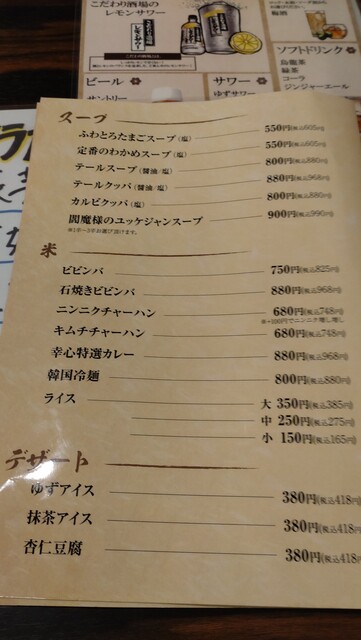 こだわり酒場の
レモンサワー
梅酒
ソフトドリンク
烏龍茶
緑茶
コーラ
ジンジャーエール
ビール
サワー
サントリー
ゆずサワー
スープ
ふわとろたまごスープ(塩) 550円(税込605円)
定番のわかめスープ(塩) 550円(税込605円)
テールスープ(醤油/塩) 800円(税込880円)
テールクッパ(醤油/塩) 880円(税込968円)
カルビクッパ(塩) 800円(税込880円)
閻魔様のユッケジャンスープ 900円(税込990円)
※1辛〜5辛お選び頂けます。
米
ビビンバ 750円(税込825円)
石焼きビビンバ 880円(税込968円)
ニンニクチャーハン 680円(税込748円)
※+100円でニンニク増し増し
キムチチャーハン 680円(税込748円)
幸心特選カレー 880円(税込968円)
韓国冷麺 800円(税込880円)
ライス 大 350円(税込385円)
中 250円(税込275円)
小 150円(税込165円)
デザート
ゆずアイス 380円(税込418円)
抹茶アイス 380円(税込418円)
杏仁豆腐 380円(税込418円)